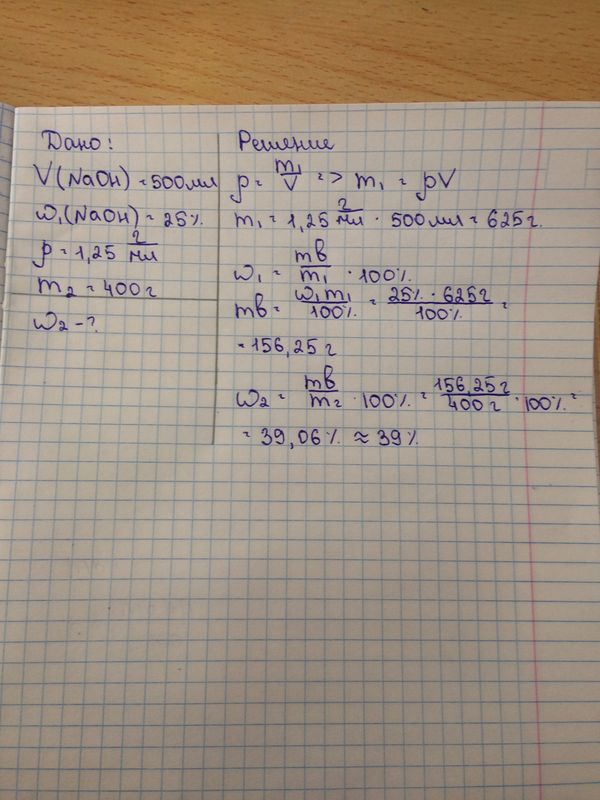 Дано:
V(NaOH) = 500 мл
ω₁(NaOH) = 25%
ρ = 1,25 г/мл
m₂ = 400 г
ω₂ - ?
Решение
ρ = m₁/V => m₁ = ρV
m₁ = 1,25 г/мл · 500 мл = 625 г.
ω₁ = mв/m₁ · 100%
mв = ω₁m₁/100% = 25% · 625 г/100% =
= 156,25 г
ω₂ = mв/m₂ · 100% = 156,25 г/400 г · 100% =
= 39,06% ≈ 39%